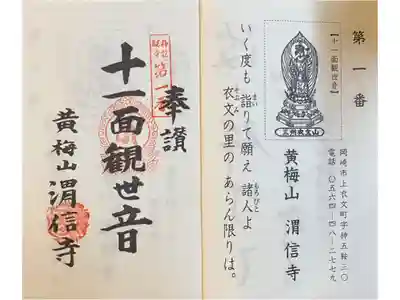 第一番
岡崎市上衣文町字神五鞍三〇
電話 〇五六四-四八-二七七九
【十一面観世音】
黄梅山 渭信寺
いく度も 詣りて願え 諸人よ
衣文の里の あらん限りは。
奉讃
十一面觀世音
黄梅山 渭信寺